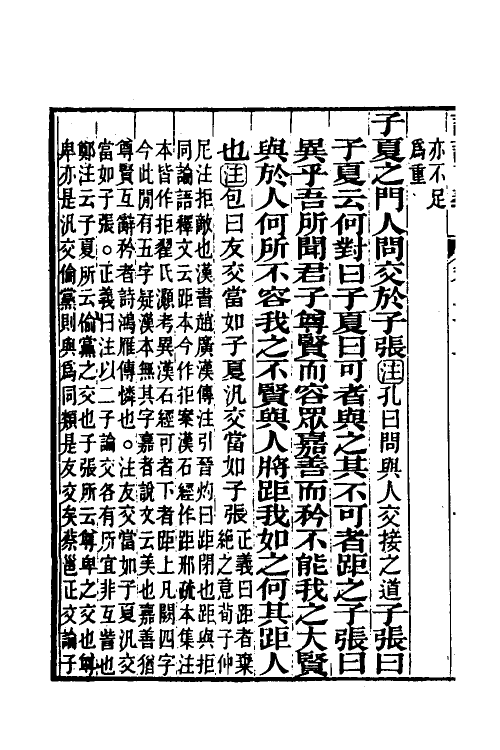 亦不足
爲重
子夏之門人問交於子張注孔曰問與人交接之道子張曰
子夏云何對曰子夏曰可者與之其不可者距之子張曰
異乎吾所聞君子尊賢而容眾嘉善而矜不能我之大賢
與於人何所不容我之不賢與人將距我如之何其距人
也注包曰友交當如子夏汎交當如子張
正義曰距者棄
絶之意荀子仲
尼注拒敵也漢書趙廣漢傳注引晉灼曰距閉也距與拒
同論語釋文云距本今作拒案漢石經作距邢疏本集注
本皆作拒翟氏灝考異漢石經可者下者距上凡闕四字
今此閒有五字疑漢本無其字嘉者說文云美也嘉善猶
尊賢互辭矜者詩鴻雁傳憐也○注友交當如子夏汎交
當如子張○正義曰注以二子論交各有所宜非互訾也
鄭注云子夏所云倫黨之交也子張所云尊卑之交也尊
卑亦是汎交倫黨則與爲同類是友交矣蔡邕正交論子